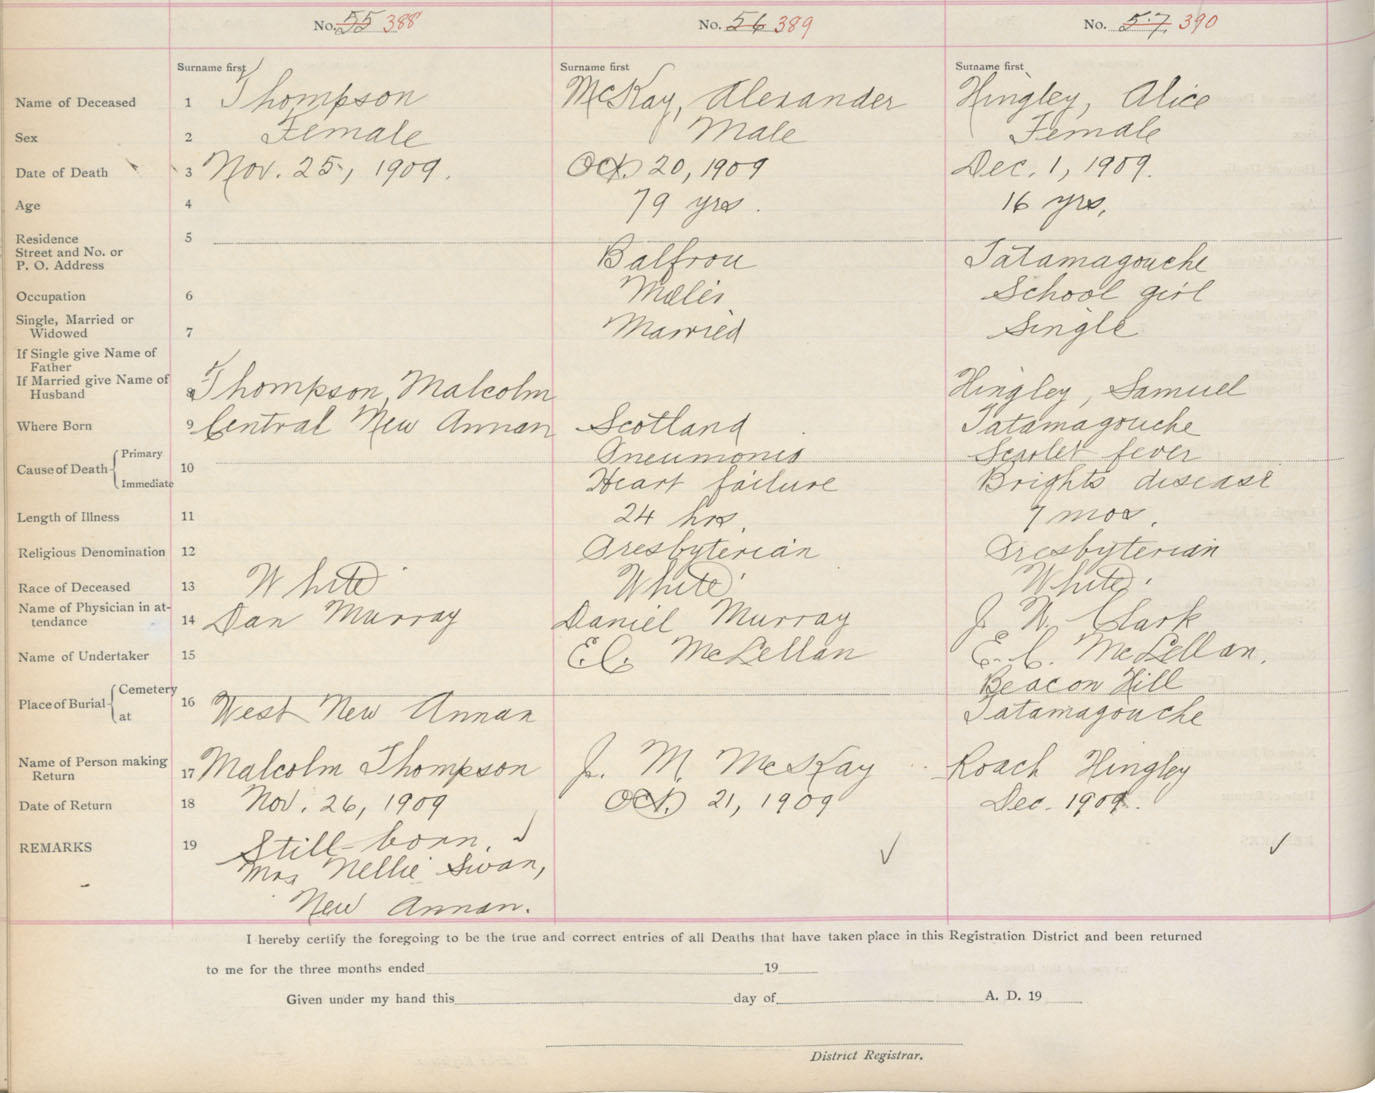 No. 55 388 No. 56 389 No. 57 390
Surname first Surname first Surname first
Name of Deceased 1 Thompson McKay, Alexander Hingley, Alice
Sex 2 Female Male Female
Date of Death 3 Nov. 25, 1909. Oct. 20, 1909 Dec. 1, 1909.
Age 4 79 yrs. 16 yrs.
Residence 5
Street and No. or
P. O. Address Balfron Tatamagouche
Occupation 6 School girl
Single, Married or
Widowed 7 Married Single
If Single give Name of
Father
If Married give Name of
Husband 8 Thompson, Malcolm Hingley, Samuel
Where Born 9 Central New Annan Scotland Tatamagouche
Cause of Death Primary Pneumonia Scarlet fever
10
Immediate Heart failure Brights disease
Length of Illness 11 24 hrs. 7 mos.
Religious Denomination 12 Presbyterian Presbyterian
Race of Deceased 13 White White White
Name of Physician in at-
tendance 14 Dan Murray Daniel Murray J. W. Clark
Name of Undertaker 15 E.C. McLellan E. C. McLellan.
Place of Burial Cemetery 16 Beacon Hill
at West New Annan Tatamagouche
Name of Person making
Return 17 Malcolm Thompson J. M. McKay Roach Hingley
Date of Return 18 Nov. 26, 1909 Oct. 21, 1909 Dec. 1909.
REMARKS 19 Still-born.
Mrs Nellie Swan,
New Annan.
I hereby certify the foregoing to be the true and correct entries of all Deaths that have taken place in this Registration District and been returned
to me for the three months ended 19
Given under my hand this day of A. D. 19
District Registrar.